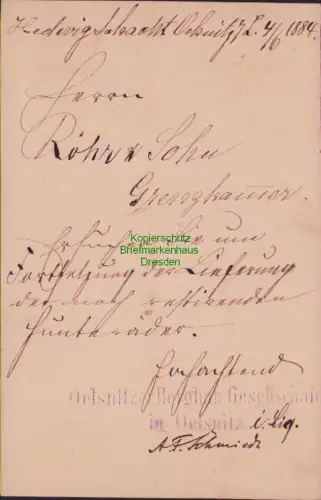 Hedwig Schacht Oelsnitz i/E. 4/6 1884.
Herrn
Röhr & Sohn
Grenzhammer.
Kopierschutz
Briefmarkenhaus
Dresden
Ersuchen Sie um
Fortsetzung der Lieferung
der noch restirenden
Hunteräder.
Hochachtend
Oelsnitzer Bergbau Gesellschaft
in Oelsnitz i. Liq.
A. F. Schmiedt